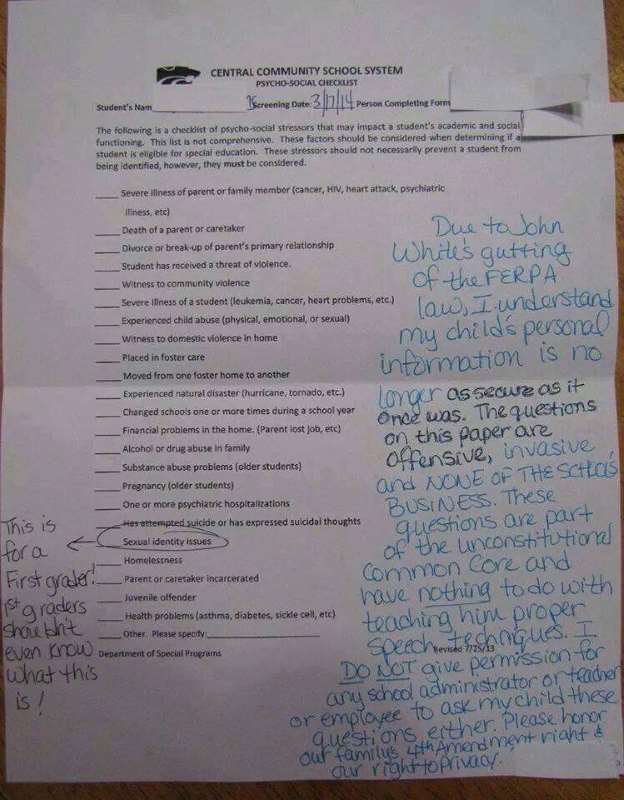 CENTRAL COMMUNITY SCHOOL SYSTEM
PSYCHO-SOCIAL CHECKLIST
Student's Nam Screening Date: 3/17/14 Person Completing Form
The following is a checklist of psycho-social stressors that may impact a student's academic and social
functioning. This list is not comprehensive. These factors should be considered when determining if a
student is eligible for special education. These stressors should not necessarily prevent a student from
being identified, however, they must be considered.
____ Severe illness of parent or family member (cancer, HIV, heart attack, psychiatric
illness, etc)
____ Death of a parent or caretaker
____ Divorce or break-up of parent's primary relationship
____ Student has received a threat of violence.
____ Witness to community violence
____ Severe illness of a student (leukemia, cancer, heart problems, etc.)
____ Experienced child abuse (physical, emotional, or sexual)
____ Witness to domestic violence in home
____ Placed in foster care
____ Moved from one foster home to another
____ Experienced natural disaster (hurricane, tornado, etc.)
____ Changed schools one or more times during a school year
____ Financial problems in the home. (Parent lost job, etc)
____ Alcohol or drug abuse in family
____ Substance abuse problems (older students)
____ Pregnancy (older students)
____ One or more psychiatric hospitalizations
____ Has attempted suicide or has expressed suicidal thoughts
____ Sexual identity issues
____ Homelessness
____ Parent or caretaker incarcerated
____ Juvenile offender
____ Health problems (asthma, diabetes, sickle cell, etc)
____ Other. Please specify:____________________
Department of Special Programs
Revised 7/25/13
This is
for a
First grader!
1st graders
shouldn't
even know
what this
is!
Due to John
White's gutting
of the FERPA
law, I understand
my child's personal
information is no
longer as secure as it
once was. The questions
on this paper are
offensive, invasive
and NONE OF THE SCHOOL'S
BUSINESS. These
questions are part
of the unconstitutional
Common Core and
have nothing to do with
teaching him proper
speech techniques. I
DO NOT give permission for
any school administrator or teacher
or employee to ask my child these
questions, either. Please honor
our family's 4th Amendment right &
our right to privacy.